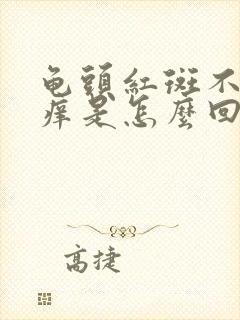 龟頭紅斑不
痒是怎麽回
高捷